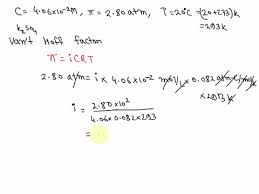 C = 4.06×10⁻²M , π = 2.80 atm , T = 20°C = (20+273)K
= 293K
K₂SO₄
Van't Hoff factor
π = iCRT
2.80 atm = i × 4.06×10⁻² mol/L × 0.082 atm
× 293K
i = 2.80×10²
4.06×0.082×293
=